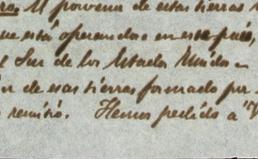 El porvenir de estas tierras
que está operando en este país,
Sur de los Estados Unidos
de esas tierras formado por
remitió. Hemos pedido a "V